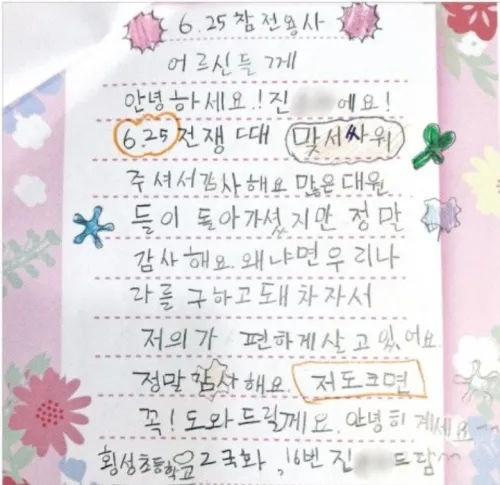 6.25참전용사
어르신들께
안녕하세요.! 진 에요!
6.25전쟁때 맞서싸워
주셔서감사해요 많은대원
들이 돌아가셨지만 정말
감사해요. 왜냐면우리나
라를 구하고돼차자서
저의가 편하게살고있어요.
정말 감사해요. 저도크면
꼭! 도와드릴께요. 안녕히 계세요~
횡성초등학교 2 국화, 16번 진 드담^^